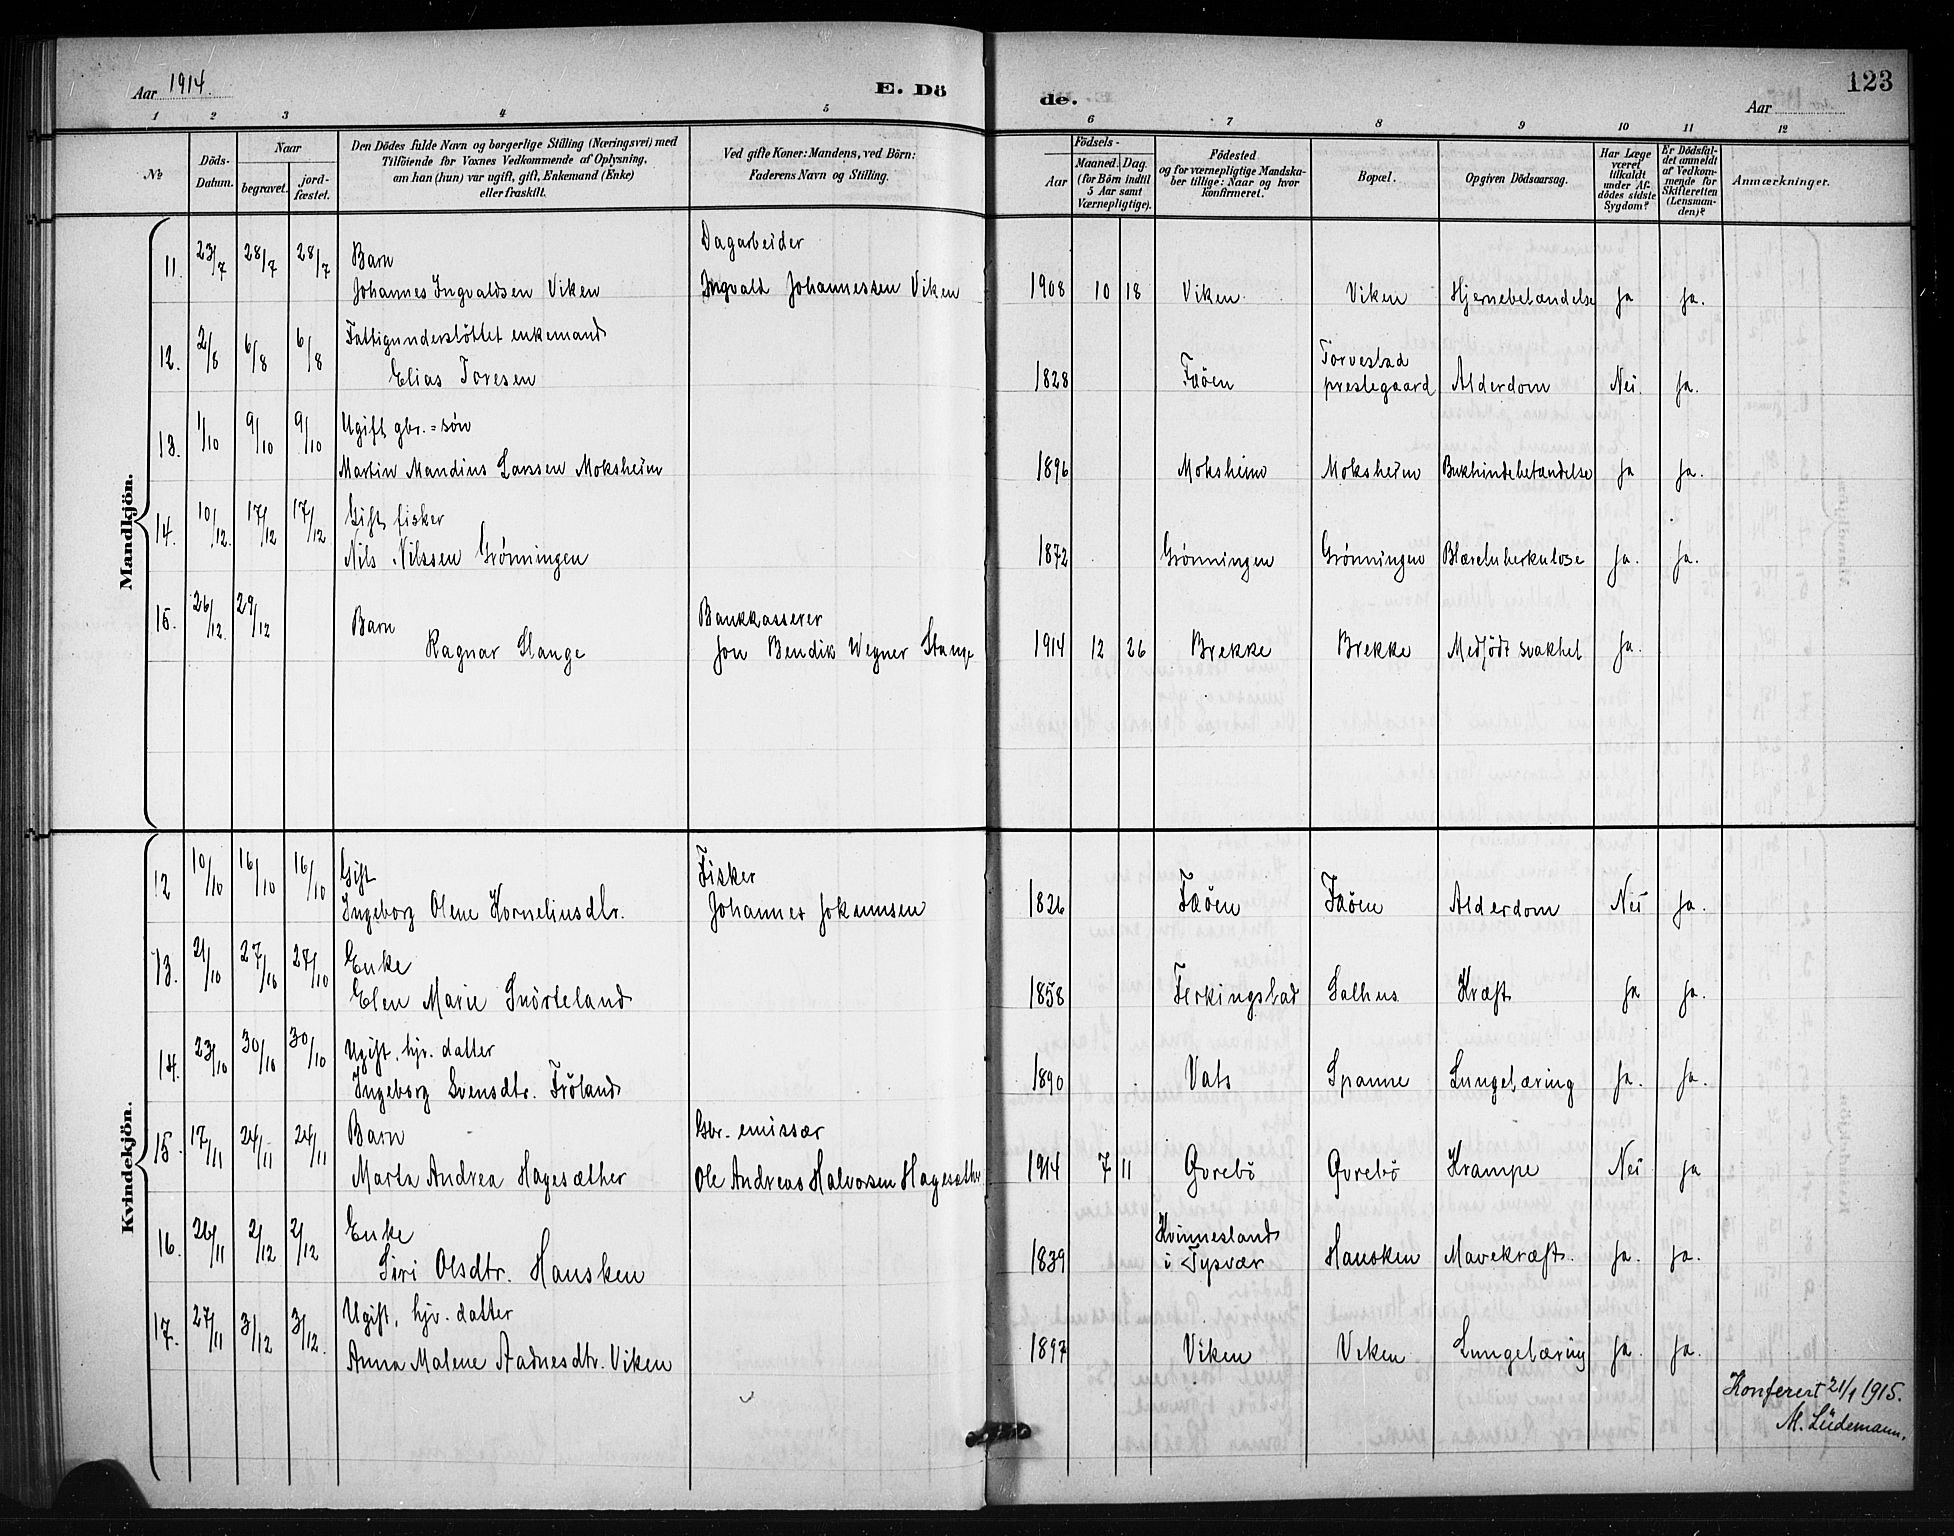 Aar 1914.
E. Dö
de.
Aar
123
1 2 3 4 5 6 7 8 9 10 11 12
№
Döds-Datum.
Naar
begravet.
jord-fæstet.
Den Dödes fulde Navn og borgerlige Stilling (Næringsvei) med
Tilföiende for Voxnes Vedkommende af Oplysning,
om han (hun) var ugift, gift, Enkemand (Enke)
eller fraskilt.
Ved gifte Koner: Mandens, ved Börn:
Faderens Navn og Stilling.
Födsels-
Aar
Maaned. Dag.
(for Börn indtil
5 Aar samt
Værnepligtige).
Födested
og for værnepligtige Mandska-
ber tillige: Naar og hvor
konfirmeret.
Bopæl.
Opgiven Dödsaarsag.
Har Læge
været
tilkaldt
under Af-
dödes sidste
Sygdom?
Er Dödsfal-
det anmeldt
af Vedkom-
mende for
Skifteretten
(Lensman-
den)?
Anmærkninger.
Mandkjön.
11. 23/7 28/7 28/7 Barn Dagarbeider
Johannes Ingvaldsen Viken Ingvald Johannessen Viken 1908 10 18 Viken Viken Hjernebetændelse ja ja.
12. 2/8 6/8 6/8 Fattigunderstöttet enkemand Torvestad
Elias Toresen 1828 Fæöen prestegaard Alderdom Nei. ja.
13. 1/10 9/10 9/10 Ugift gbr.=søn
Martin Mandius Larssen Moksheim 1896 Moksheim Moksheim Bukhindebetændelse ja ja.
14. 10/12. 17/12 17/12 Gift fisker
Nils Nilssen Grønningen 1872 Grönningen Grønningen Blæretuberkulose ja. ja.
15. 26/12. 29/12 Barn Bankkasserer
Ragnar Stange Jon Bendik Wegner Stange 1914 12 26 Brekke Brekke Medfödt svakhet ja.
Kvindekjön.
12 10/10 16/10 16/10 Gift Fisker
Ingeborg Olene Korneliusdtr. Johannes Jokumsen 1826 Fæöen Fæöen Alderdom Nei ja.
13. 21/10 27/10 27/10 Enke
Elen Marie Snörteland 1858 Ferkingstad Salhus Kræft ja ja.
14. 23/10 30/10 30/10 Ugift, hjv. datter
Ingeborg Svensdtr. Fröland 1890 Vats Spanne Lungetæring ja. ja.
15. 17/11 24/11 24/11 Barn Gbr. emissær
Marta Andrea Hagesæther Ole Andreas Halvorsen Hagesæther 1914 7 11 Gorebö Gorebö Krampe Nei ja
16. 26/11 2/12 2/12 Enke Kvinnesland
Siri Olsdtr. Hausken 1839 i Tysvær Hausken Mavekræft. ja. ja.
17. 27/11 3/12 3/12. Ugift, hjv. datter
Anna Malene Aadnesdtr. Viken 1897 Viken Viken Lungetæring ja. ja.
Konferert 21/1 1915.
M. Lüdemann.